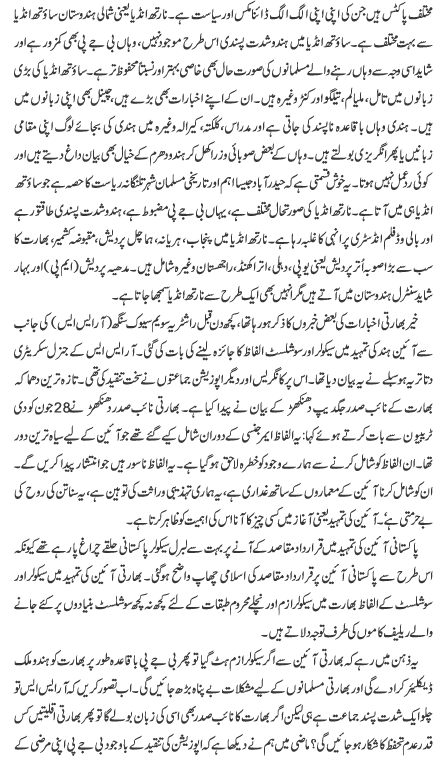 مختلف پاکٹس ہیں جن کی اپنی اپنی الگ الگ ڈائنامکس اور سیاست ہے۔ نارتھ انڈیا یعنی شمالی ہندوستان ساؤتھ انڈیا
سے بہت مختلف ہے۔ ساؤتھ انڈیا میں ہندو شدت پسندی اس طرح موجود نہیں، وہاں بی جے پی بھی کمزور ہے اور
شاید اسی وجہ سے وہاں رہنے والے مسلمانوں کی صورت حال بھی خاصی بہتر اور نسبتاً محفوظ تر ہے۔ ساؤتھ انڈیا کی بڑی
زبانوں میں تامل، ملیالم، تیلگو اور کنڑ وغیرہ ہیں۔ ان کے اپنے اخبارات بھی بڑے ہیں، چینل بھی اپنی زبانوں میں
ہیں۔ ہندی وہاں باقاعدہ ناپسند کی جاتی ہے اور مدراس، کلکتہ، کیرالہ وغیرہ میں ہندی کی بجائے لوگ اپنی مقامی
زبانیں یا پھر انگریزی بولتے ہیں۔ وہاں کے بعض صوبائی وزرا کھل کر ہندو دھرم کے خیال بھی بیان داغ دیتے ہیں اور
کوئی ردعمل نہیں ہوتا۔ یہ خوش قسمتی ہے کہ حیدر آباد جیسا اہم اور تاریخی مسلمان شہر تلنگانہ ریاست کا حصہ ہے جو ساؤتھ
انڈیا ہی میں آتا ہے۔ نارتھ انڈیا کی صورتحال مختلف ہے، یہاں بی جے پی مضبوط ہے، ہندو شدت پسندی طاقتور ہے
اور بالی وڈ فلم انڈسٹری پر انہی کا غلبہ رہا ہے۔ نارتھ انڈیا میں پنجاب، ہریانہ، ہماچل پردیش، مقبوضہ کشمیر، بھارت کا
سب سے بڑا صوبہ اُتر پردیش یعنی یو پی، دہلی، اتراکھنڈ، راجھستان وغیرہ شامل ہیں۔ مدھیہ پردیش (ایم پی) اور بہار
شاید سنٹرل ہندوستان میں آتے ہیں مگر انہیں بھی ایک طرح سے نارتھ انڈیا سمجھا جاتا ہے۔
خیر بھارتی اخبارات کی بعض خبروں کا ذکر ہورہا تھا، کچھ دن قبل راشٹریہ سویم سیوک سنگھ (آر ایس ایس) کی جانب
سے آئین ہند کی تمہید میں سیکولر اور سوشلسٹ الفاظ کا جائزہ لینے کی بات کی گئی۔ آر ایس ایس کے جنرل سکریٹری
دتاتریہ ہوسبلے نے یہ بیان دیا تھا۔ اس پر کانگریس اور دیگر اپوزیشن جماعتوں نے سخت تنقید کی تھی۔ تازہ ترین دھماکہ
بھارت کے نائب صدر جگدیپ دھنکھڑ کے بیان نے پیدا کیا ہے۔ بھارتی نائب صدر دھنکھڑ نے 28 جون کو دی
ٹریبیون سے بات کرتے ہوئے کہا: یہ الفاظ ایمرجنسی کے دوران شامل کیے گئے تھے جو آئین کے لیے سیاہ ترین دور
تھا۔ ان الفاظ کو شامل کرنے سے ہمارے وجود کو خطرہ لاحق ہوگیا ہے۔ یہ الفاظ ناسور ہیں جو انتشار پیدا کریں گے۔
ان کو شامل کرنا آئین کے معماروں کے ساتھ غداری ہے، یہ ہماری تہذیبی وراثت کی توہین ہے، یہ سناتن کی روح کی
بے حرمتی ہے‘۔ آئین کی تمہید یعنی آغاز میں کسی چیز کا آنا اس کی اہمیت کو ظاہر کرتا ہے۔
پاکستانی آئین کی تمہید میں قرارداد مقاصد کے آنے پر بہت سے لبرل سیکولر پاکستانی حلقے چراغ پا رہے تھے کیونکہ
اس طرح سے پاکستانی آئین پر قرارداد مقاصد کی اسلامی چھاپ واضح ہوگئی۔ بھارتی آئین کی تمہید میں سیکولر اور
سوشلسٹ کے الفاظ بھارت میں سیکولرازم اور نچلے محروم طبقات کے لئے کچھ نہ کچھ سوشلسٹ بنیادوں پر کئے جانے
والے ریلیف کاموں کی طرف توجہ دلاتے ہیں۔
یہ ذہن میں رہے کہ بھارتی آئین سے اگر سیکولرازم ہٹ گیا تو پھر بی جے پی باقاعدہ طور پر بھارت کو ہندو ملک
ڈیکلیئر کرا دے گی اور بھارتی مسلمانوں کے لیے مشکلات بے پناہ بڑھ جائیں گی۔ اب تصور کریں کہ آر ایس ایس تو
چلو ایک شدت پسند جماعت ہے ہی لیکن اگر بھارت کا نائب صدر بھی اسی کی زبان بولے گا تو پھر بھارتی اقلیتیں کس
قدر عدم تحفظ کا شکار ہوجائیں گی؟ ماضی میں ہم نے دیکھا ہے کہ اپوزیشن کی تنقید کے باوجود بی جے پی اپنی مرضی کے